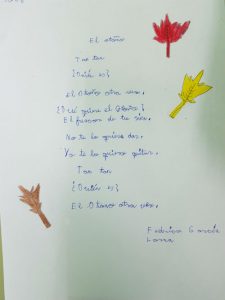 El otoño
Toc toc
¿Quién es?
El Otoño otra vez.
¿Qué quiere el Otoño?
El frescor de tu sien.
No te lo quiero dar.
Yo te lo quiero quitar.
Toc toc
¿Quién es?
El Otoño otra vez.
Federico García
Lorca